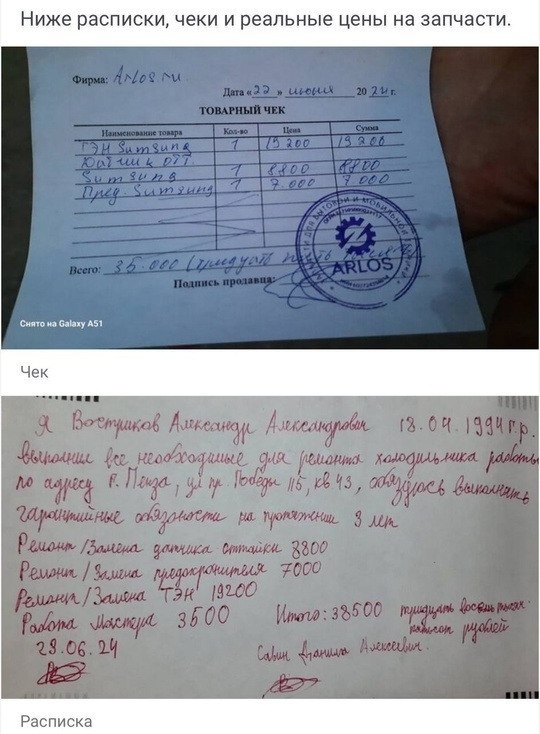 Ниже расписки, чеки и реальные цены на запчасти.
Фирма: Arlos.ru.
Дата «22» июня 2024 г.
ТОВАРНЫЙ ЧЕК
Наименование товара Кол-во Цена Сумма
ТЭН Sumsung 1 19200 19200
Датчик ОТТ
Sumsung 1 8800 8800
Пред. Sumsung 1 7.000 7000
Всего: 35.000 (тридцать
Подпись продавца:
ARLOS
Снято на Galaxy A51
Чек
Я Востриков Александр Александрович 18.04.1994 г.р.
выполнил все необходимые для ремонта холодильника работы
по адресу г. Пенза, ул пр. Победы 115, кв 43, обязуюсь выполнять
гарантийные обязности на протяжении 3 лет
Ремонт/Замена датчика оттайки 8800
Ремонт/Замена предохранителя 7000
Ремонт/Замена ТЭН 19200
Работа мастера 3500 Итого: 38500 тридцать восемь тысяч
пятьсот рублей
28.06.24 Савин Данила Алексеевич.
Расписка